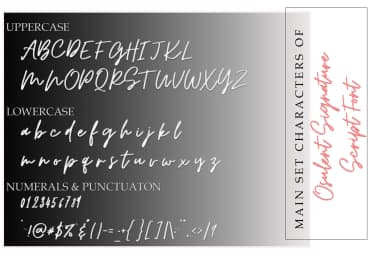 UPPERCASE
ABCDEFGHIJKL
MNOPQRSTUVWXYZ
LOWERCASE
a b c d e f g h i j k l
m n o p q r s t u v w x y z
NUMERALS & PUNCTUATON
0123456789
MAIN SET CHARACTERS OF
Osulent Signature
Script Font